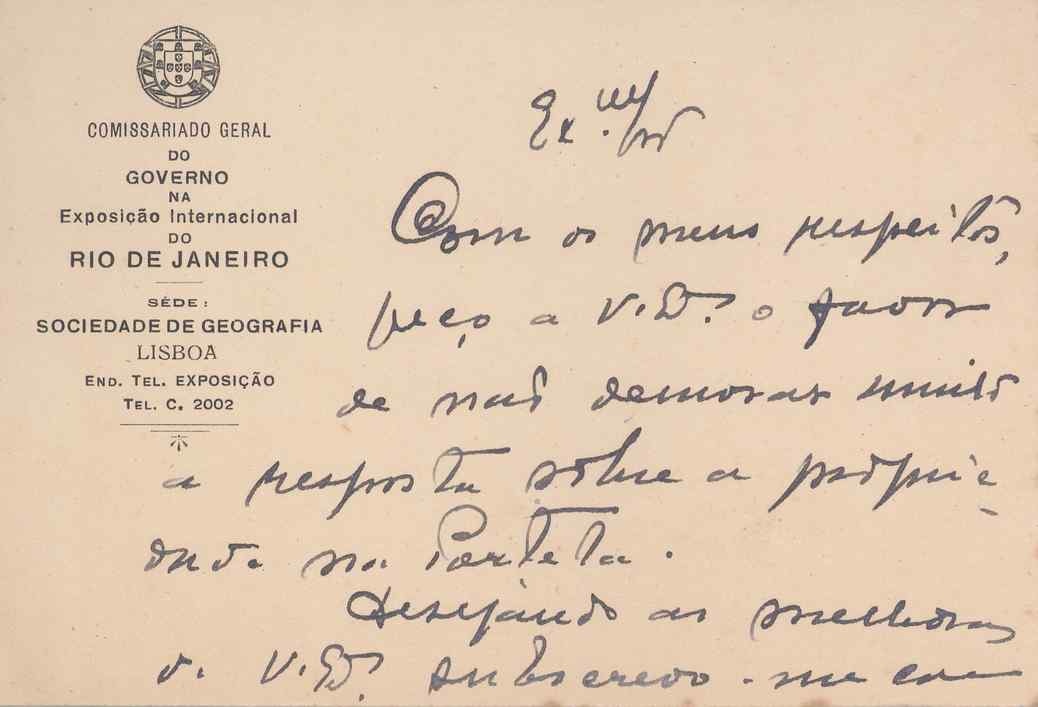 COMISSARIADO GERAL
DO
GOVERNO
NA
Exposição Internacional
DO
RIO DE JANEIRO
SÉDE:
SOCIEDADE DE GEOGRAFIA
LISBOA
END. TEL. EXPOSIÇÃO
TEL. C. 2002
Com os meus respeitos,
peço a V. Exª o favor
de não demorar muito
a resposta sôbre a
na
Desejando as melhoras
de V. Exª subscrevo-me com